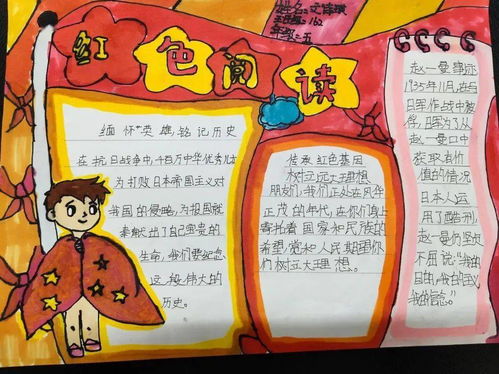 姓名:
班级: 162
年级: 五
红色阅读
缅怀英雄铭记历史
在抗日战争中,千百万中华优秀儿女
为打败日本帝国主义对
我国的侵略,为报国就
奉献出了自己宝贵的
生命,我们要纪念
这段伟大的
历史。
传承红色基因
树立远大理想
朋友们,我们正处在风华
正茂的年代,在你们身上
寄托着国家和民族的
希望,党和人民期望你
们树立大理想。
赵一曼事迹
1935年11月,在与
日军作战中被
俘,日军为了从
赵一曼口中
获取有价
值的情况
日本人运
用了酷刑,
赵一曼仍坚决
不屈说:“我的
目的,我的主义
我的信念。”